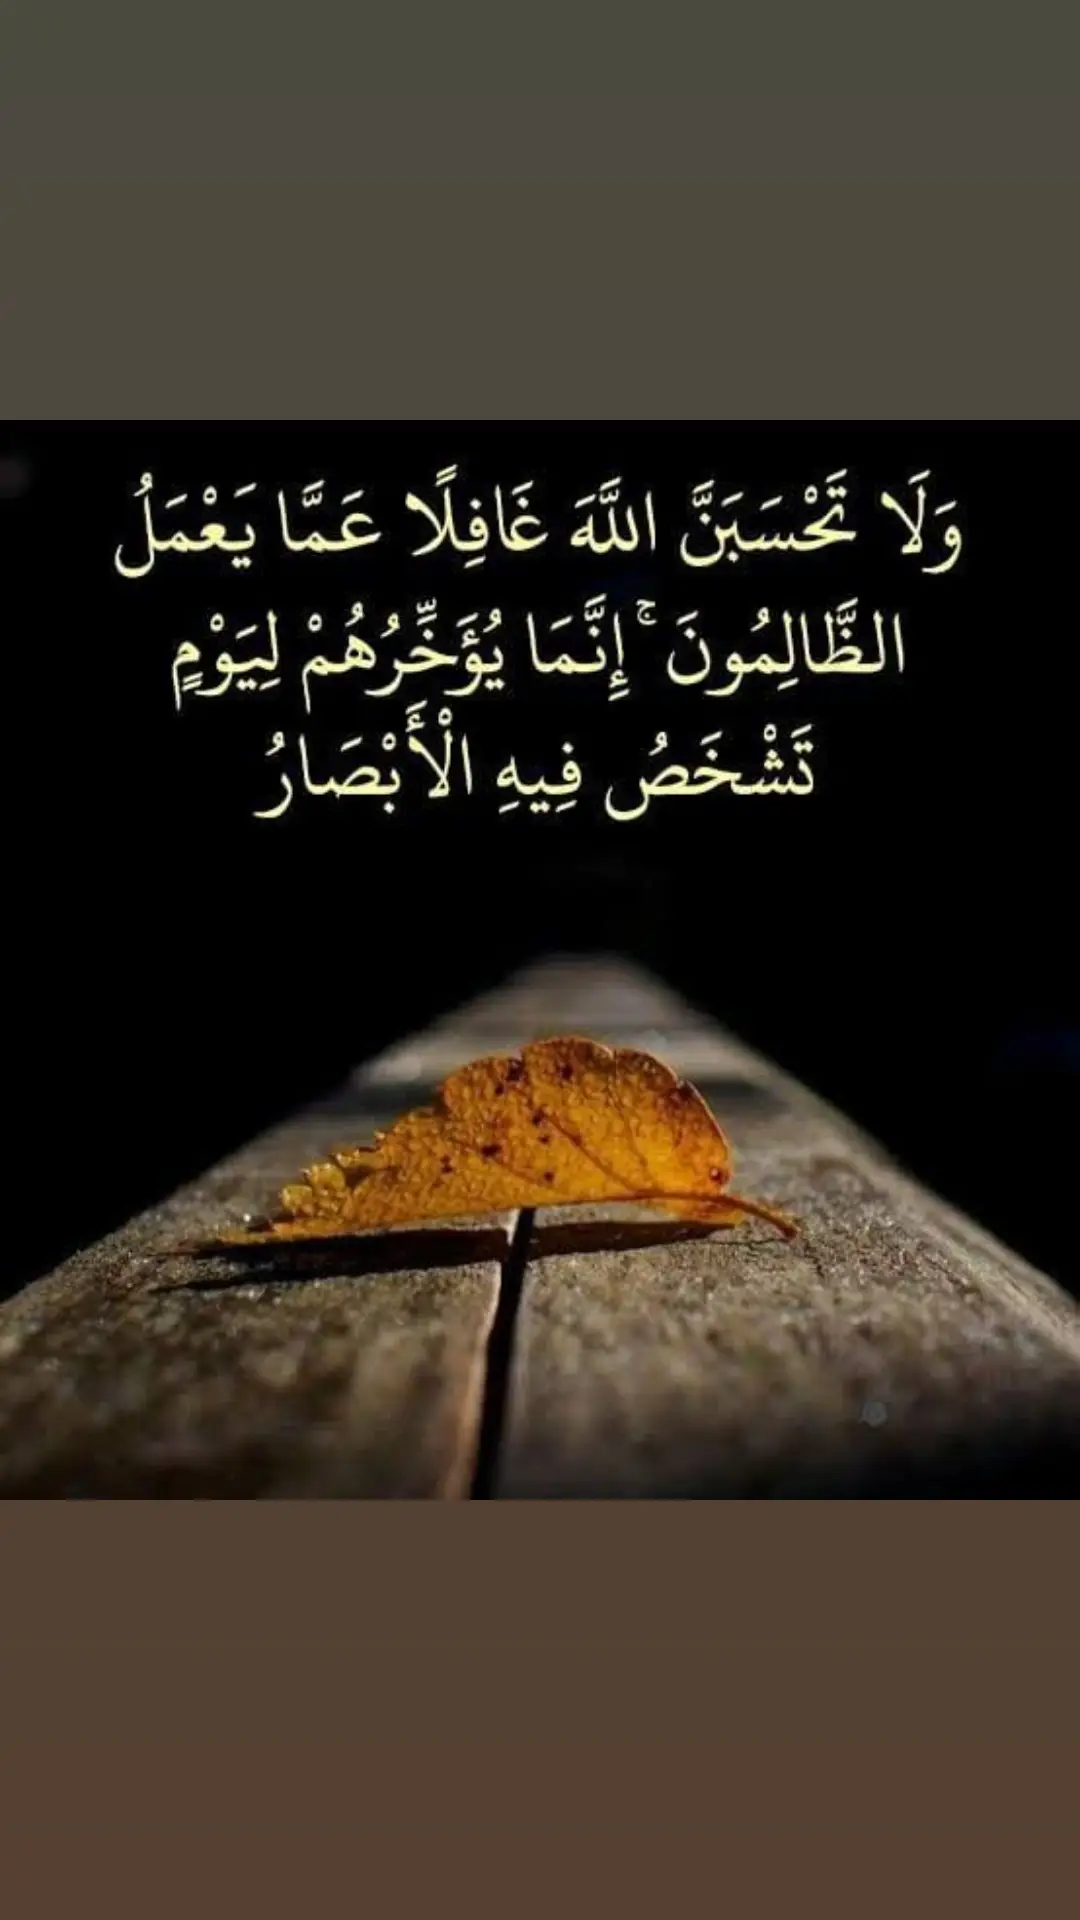 وَلَا تَحْسَبَنَّ اللَّهَ غَافِلًا عَمَّا يَعْمَلُ
الظَّالِمُونَ ۚ إِنَّمَا يُؤَخِّرُهُمْ لِيَوْمٍ
تَشْخَصُ فِيهِ الْأَبْصَارُ